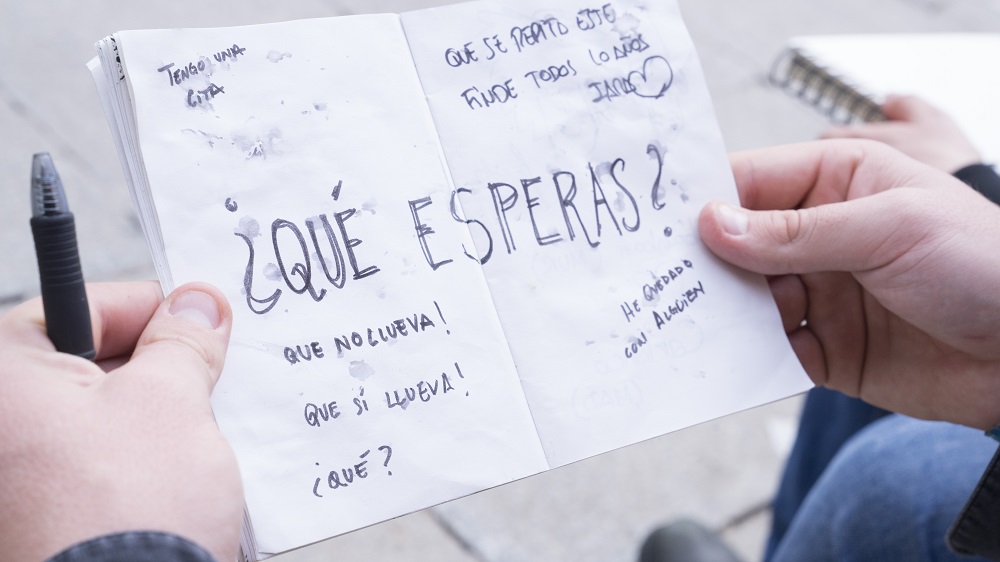 TENGO UNA
CITA
QUE SE REPITO ESTE
FINDE TODOS LO AÑOS
¿QUÉ ESPERAS?
QUE NO LLUEVA!
QUE SÍ LLUEVA!
¿QUÉ?
HE QUEDADO
CON ALGUIEN